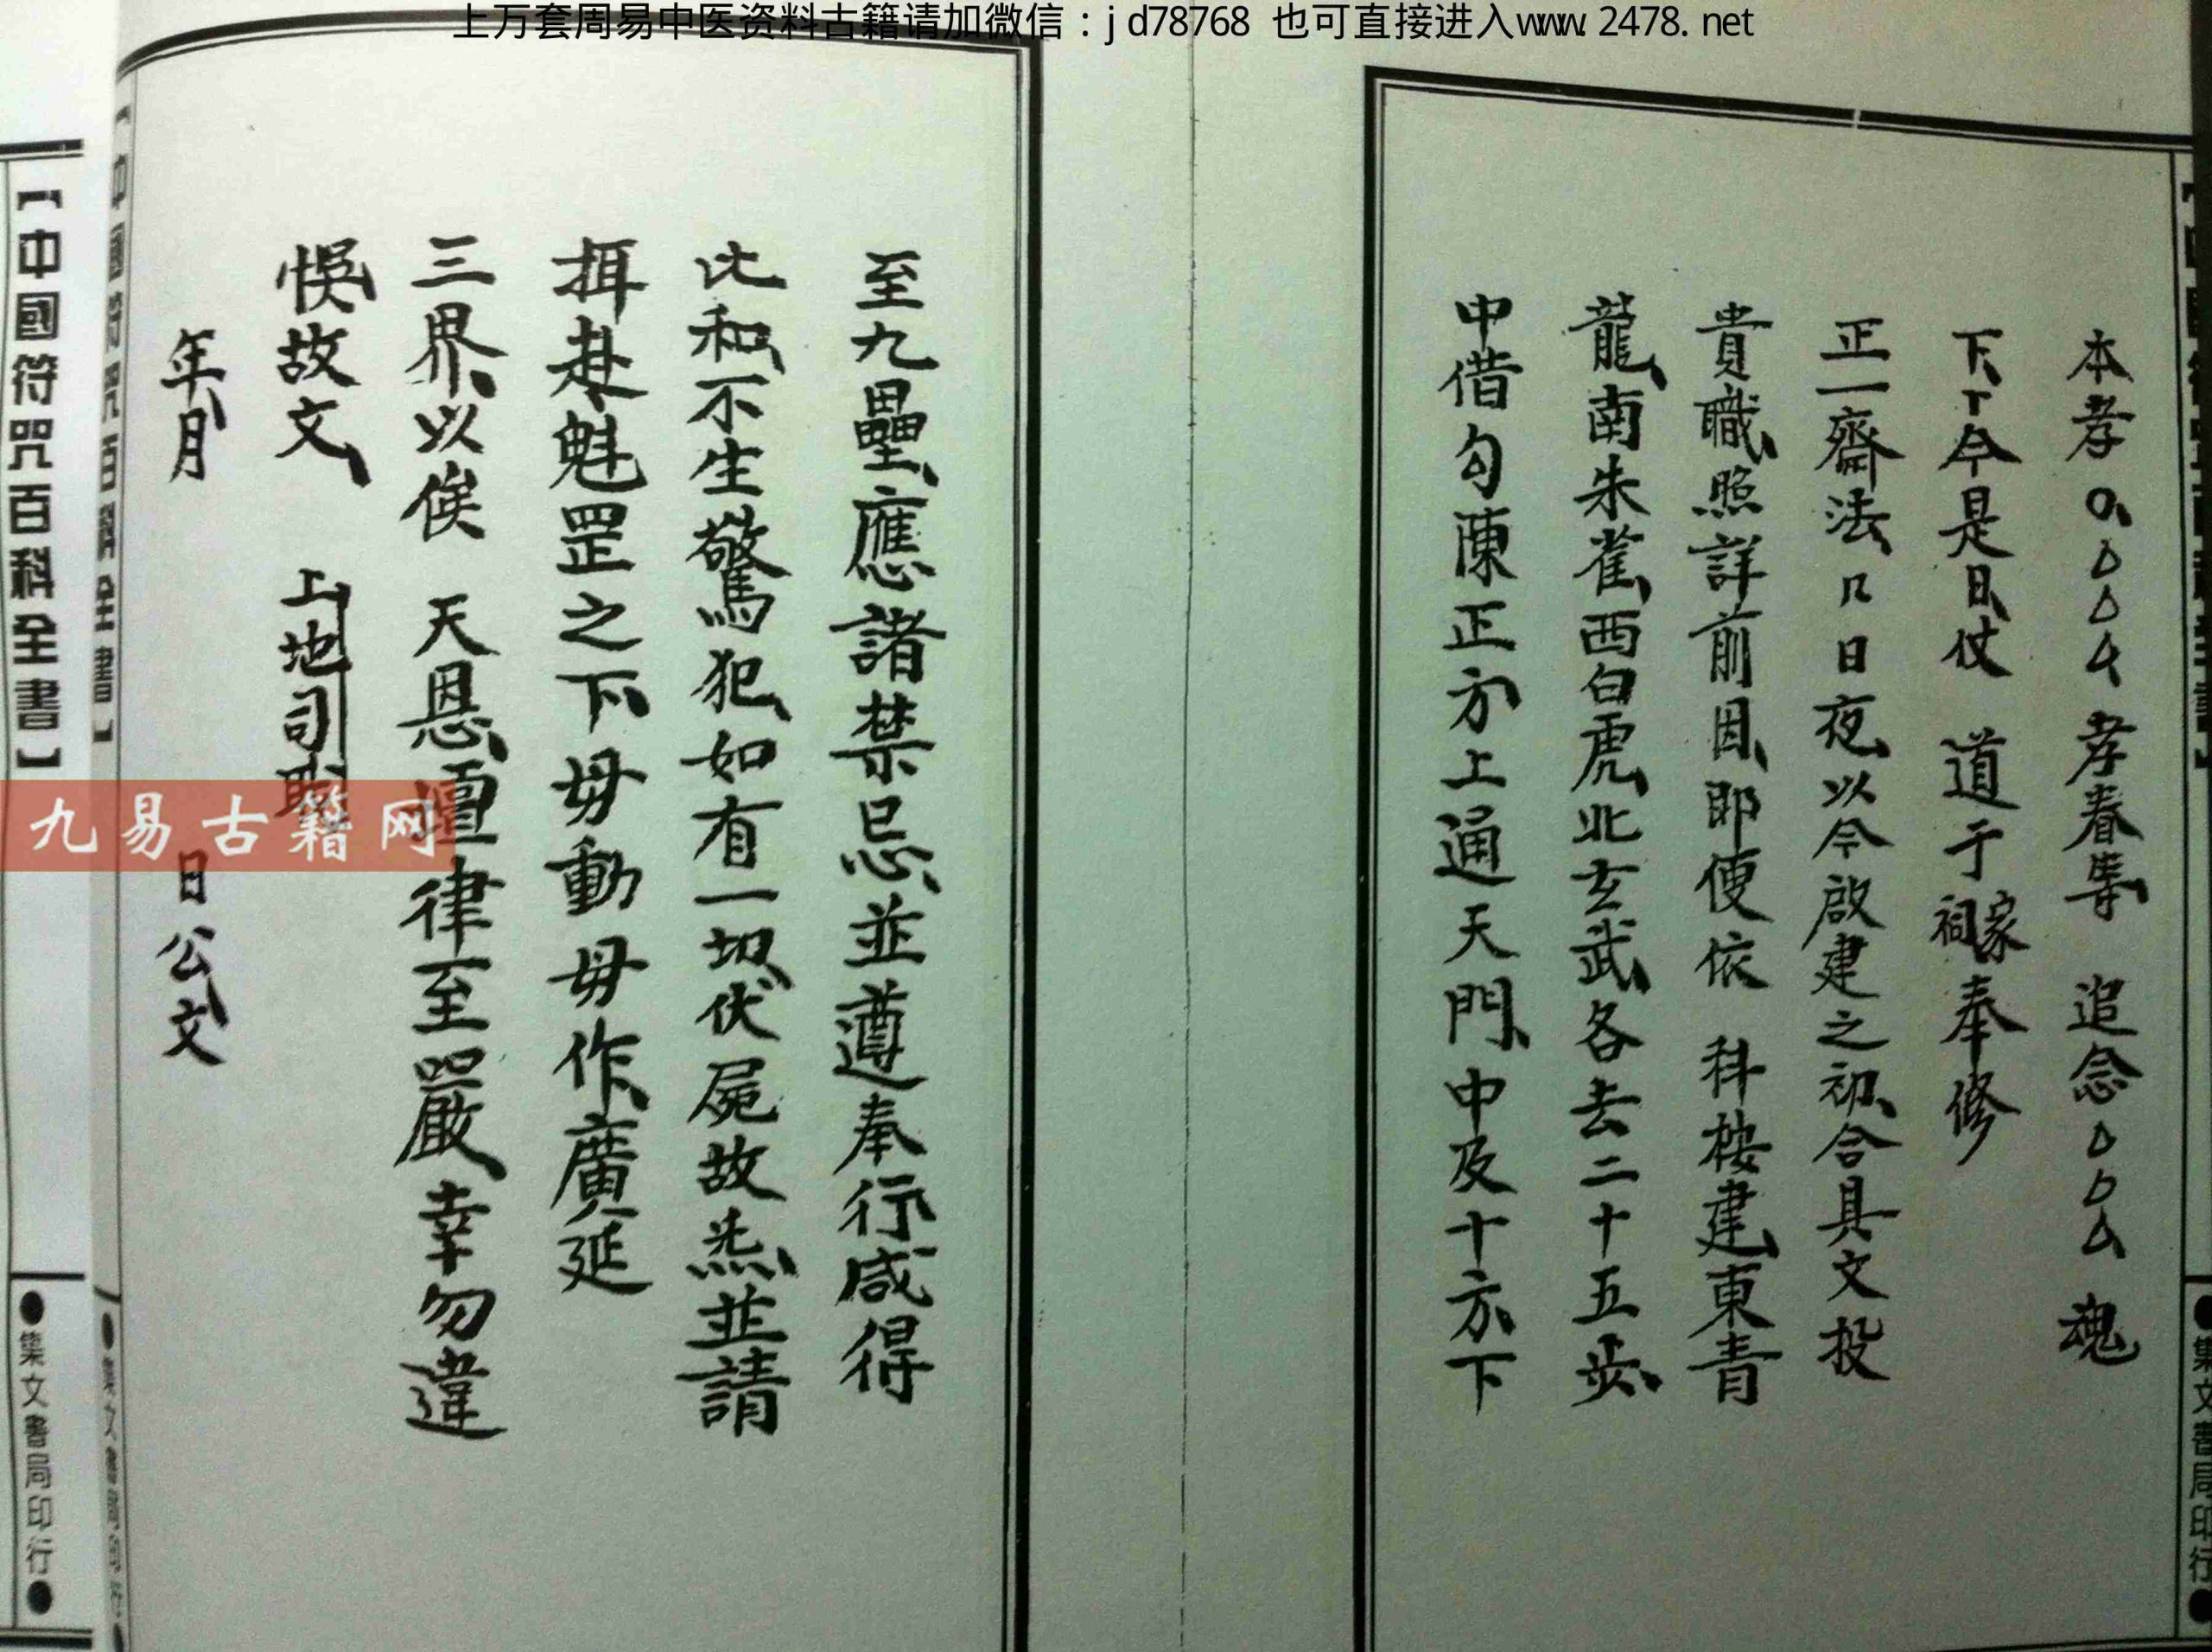 上万套周易中医资料古籍请加微信：jd78768 也可直接进入www.2478.net
本孝○△△△孝眷等 追念△△△魂
下丅今是日仗 道于家祠奉修
正一齋法几日夜以今啟建之初合具文投
貴職照詳前因即便依 科按建東青
龍南朱雀西白虎北玄武各去二十五步
中借勾陳正方上通天門中及十方下
至九壘應諸禁忌並遵奉行咸得
比和不生驚犯如有一切伏屍故炁並請
揖赴魁罡之下毋動毋作廣延
三界以俟 天恩壇律至嚴幸勿違
悞故文 上地司
年月 日公文
【中國符咒百科全書】
●集文書局印行●
九易古籍网